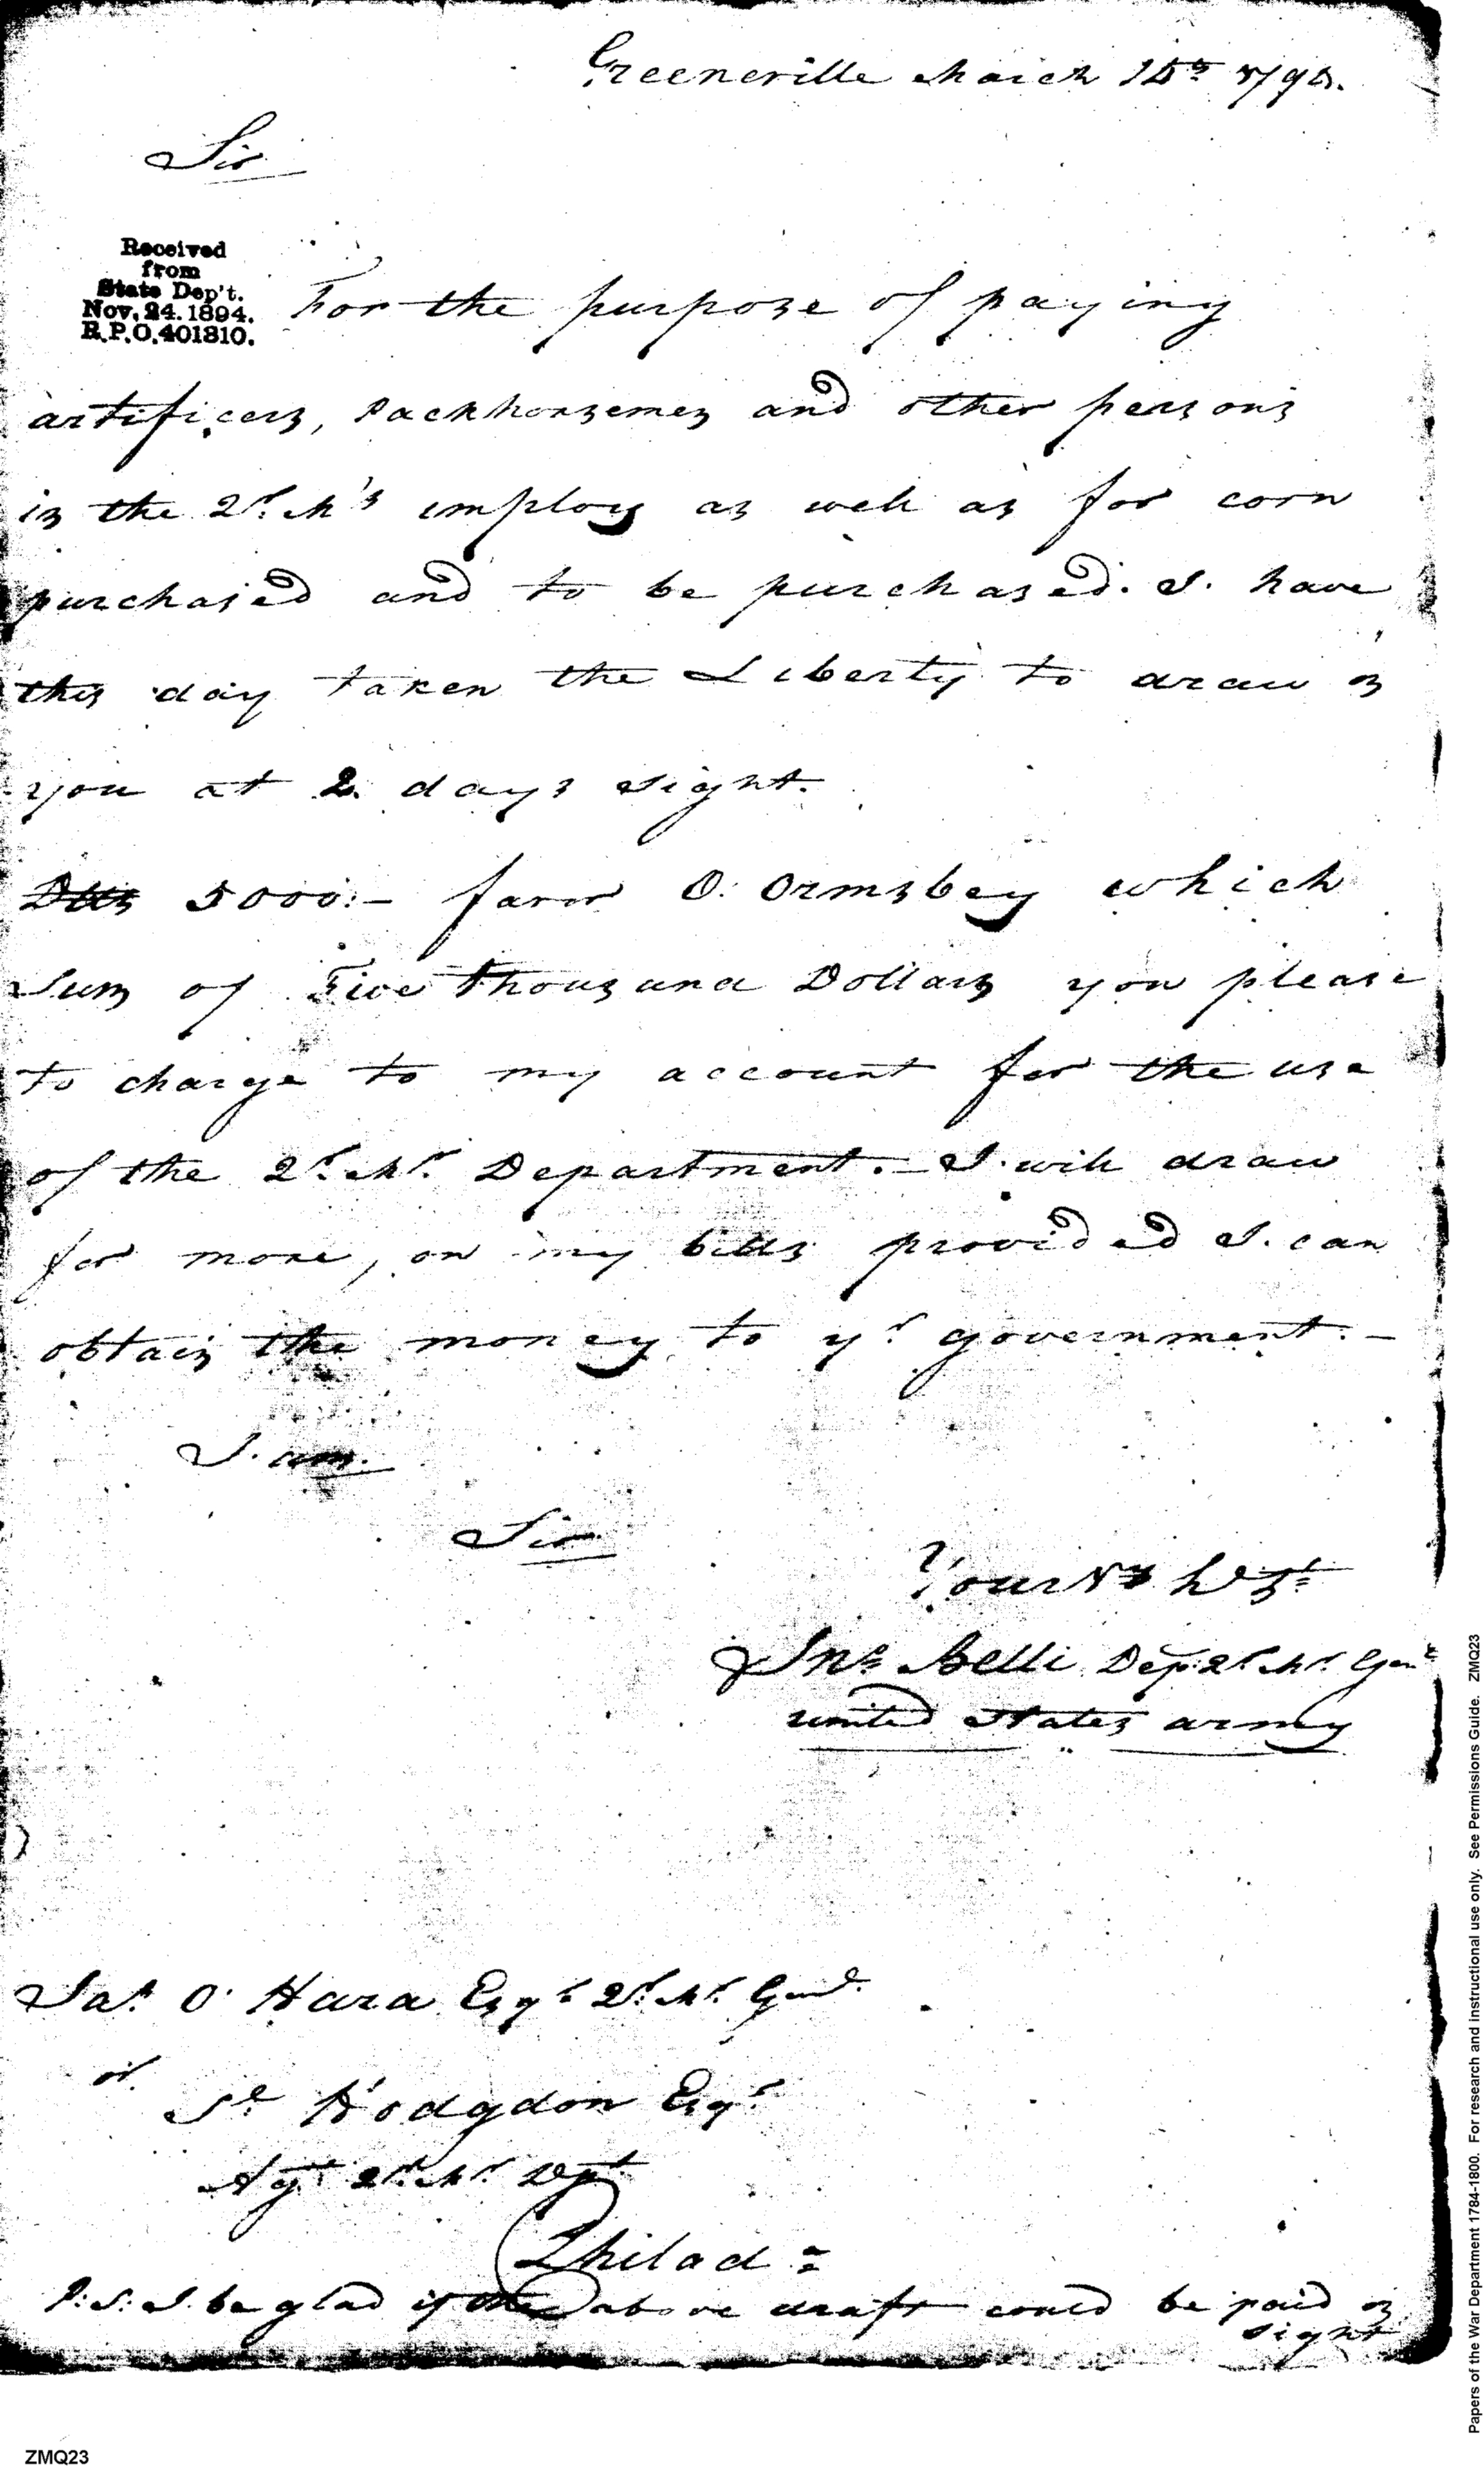 Greeneville March 15th 1795.
Sir
Received
from
State Dep't.
Nov. 24. 1894.
R.P.O. 401810.
For the purpose of paying
artificers, Packhorsemen and other persons
in the Qr. Mr's employ as well as for corn
purchased and to be purchased. I. have
this day taken the Liberty to draw on
you at 2 days sight.
Dlls 5000:- favor O: Ormsbey which
Sum of Five thousand Dollars you please
to charge to my account for the use
of the Qr. Mr. Department. - I. will draw
for more, on my bills provided I. can
obtain the money to yr government. -
I. am.
Sir
Your
Jno. Belli Dep: Qr. Mr. Genl
united States army
Jas. O'Hara Esqr Qr. Mr. Genl.
or.
Sl Hodgdon Esqr
Agt Qr. Mr. Dept
Philad=
P:S: I. be glad if the above draft could be paid on
sight
ZMQ23
Papers of the War Department 1784-1800. For research and instructional use only. See Permissions Guide. ZMQ23